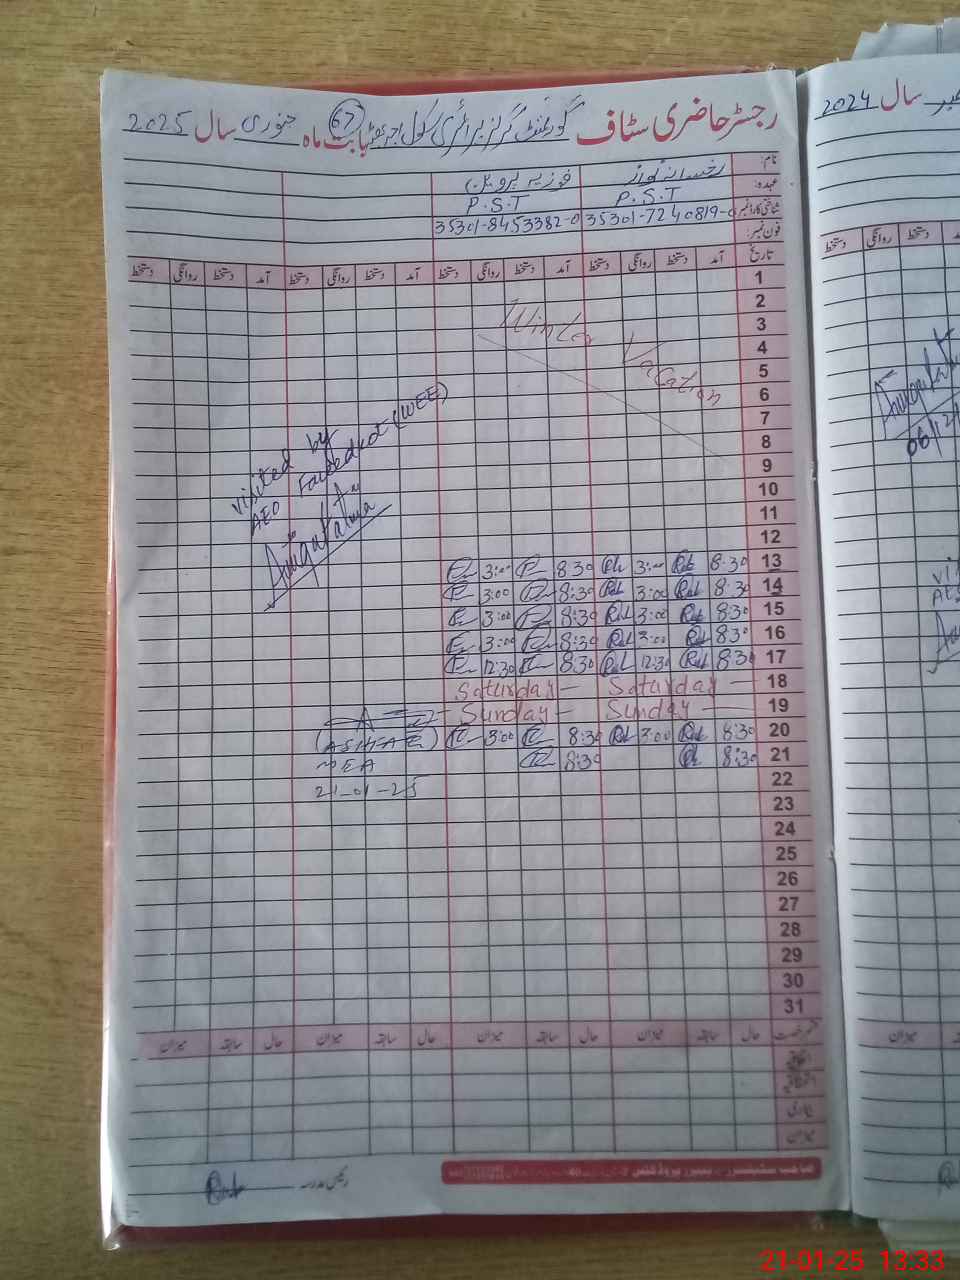 رجسٹر حاضری سٹاف گورنمنٹ گرلز پرائمری سکول بابت ماہ جنوری سال 2025
67
نام: رخسانہ کوثر فوزیہ پروین
عہدہ: P.S.T P.S.T
شناختی کارڈ نمبر 35301-7240819-0 35301-8453382-0
فون نمبر:
تاریخ آمد دستخط روانگی دستخط آمد دستخط روانگی دستخط آمد دستخط روانگی دستخط آمد دستخط روانگی دستخط
1
2
3
Winter Vacation
4
5
6
7
8
9
10
11
12
visited by
AEO (WEE)
13 8:30 3:00 8:30 3:00
14 8:30 3:00 8:30 3:00
15 8:30 3:00 8:30 3:00
16 8:30 3:00 8:30 3:00
17 8:30 12:30 8:30 12:30
18 Saturday — Saturday —
19 Sunday — Sunday —
20 8:30 3:00 8:30 3:00
21 8:30 8:30
(ASHFAQ)
MEA
21-01-25
22
23
24
25
26
27
28
29
30
31
قسم رخصت حال سابقہ میزان حال سابقہ میزان حال سابقہ میزان حال سابقہ میزان
اتفاقیہ
استحقاقیہ
بیماری
میزان
رئیس مدرسہ
سال 2024
دستخط روانگی دستخط
06/12
میزان
21-01-25 13:33